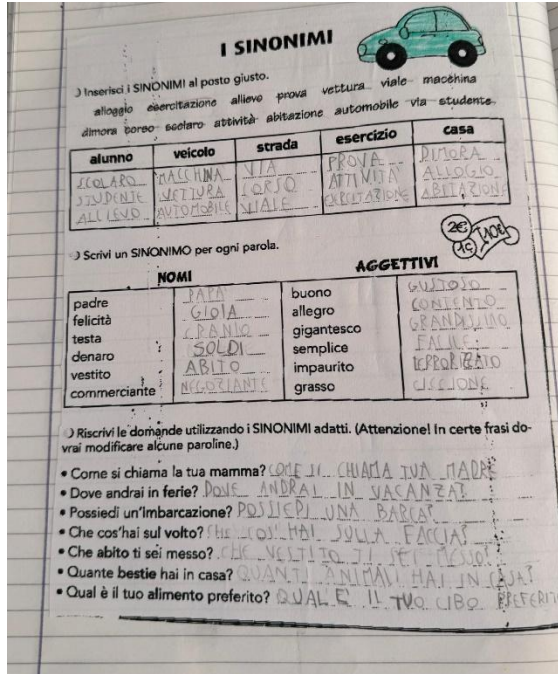 I SINONIMI
Inserisci i SINONIMI al posto giusto.
alloggio esercitazione allievo prova vettura viale macchina
dimora corso scolaro attività abitazione automobile via studente
alunno veicolo strada esercizio casa
SCOLARO MACCHINA VIA PROVA DIMORA
STUDENTE VETTURA CORSO ATTIVITA' ALLOGIO
ALLIEVO AUTOMOBILE VIALE ABITAZIONE
2€ 10€
1€
Scrivi un SINONIMO per ogni parola.
NOMI AGGETTIVI
padre PAPA' buono GUSTOSO
felicità GIOIA allegro CONTENTO
testa CRANIO gigantesco GRANDISSIMO
denaro SOLDI semplice FACILE
vestito ABITO impaurito TERRORIZZATO
commerciante NEGOZIANTE grasso CICCIONE
Riscrivi le domande utilizzando i SINONIMI adatti. (Attenzione! In certe frasi do-
vrai modificare alcune paroline.)
• Come si chiama la tua mamma? COME SI CHIAMA TUA MADRE
• Dove andrai in ferie? DOVE ANDRAI IN VACANZA?
• Possiedi un'imbarcazione? POSSIEDI UNA BARCA?
• Che cos'hai sul volto? CHE COS' HAI SULLA FACCIA?
• Che abito ti sei messo? CHE VESTITO TI SEI MESSO?
• Quante bestie hai in casa? QUANTI ANIMALI HAI IN CASA?
• Qual è il tuo alimento preferito? QUAL E' IL TUO CIBO PREFERITO